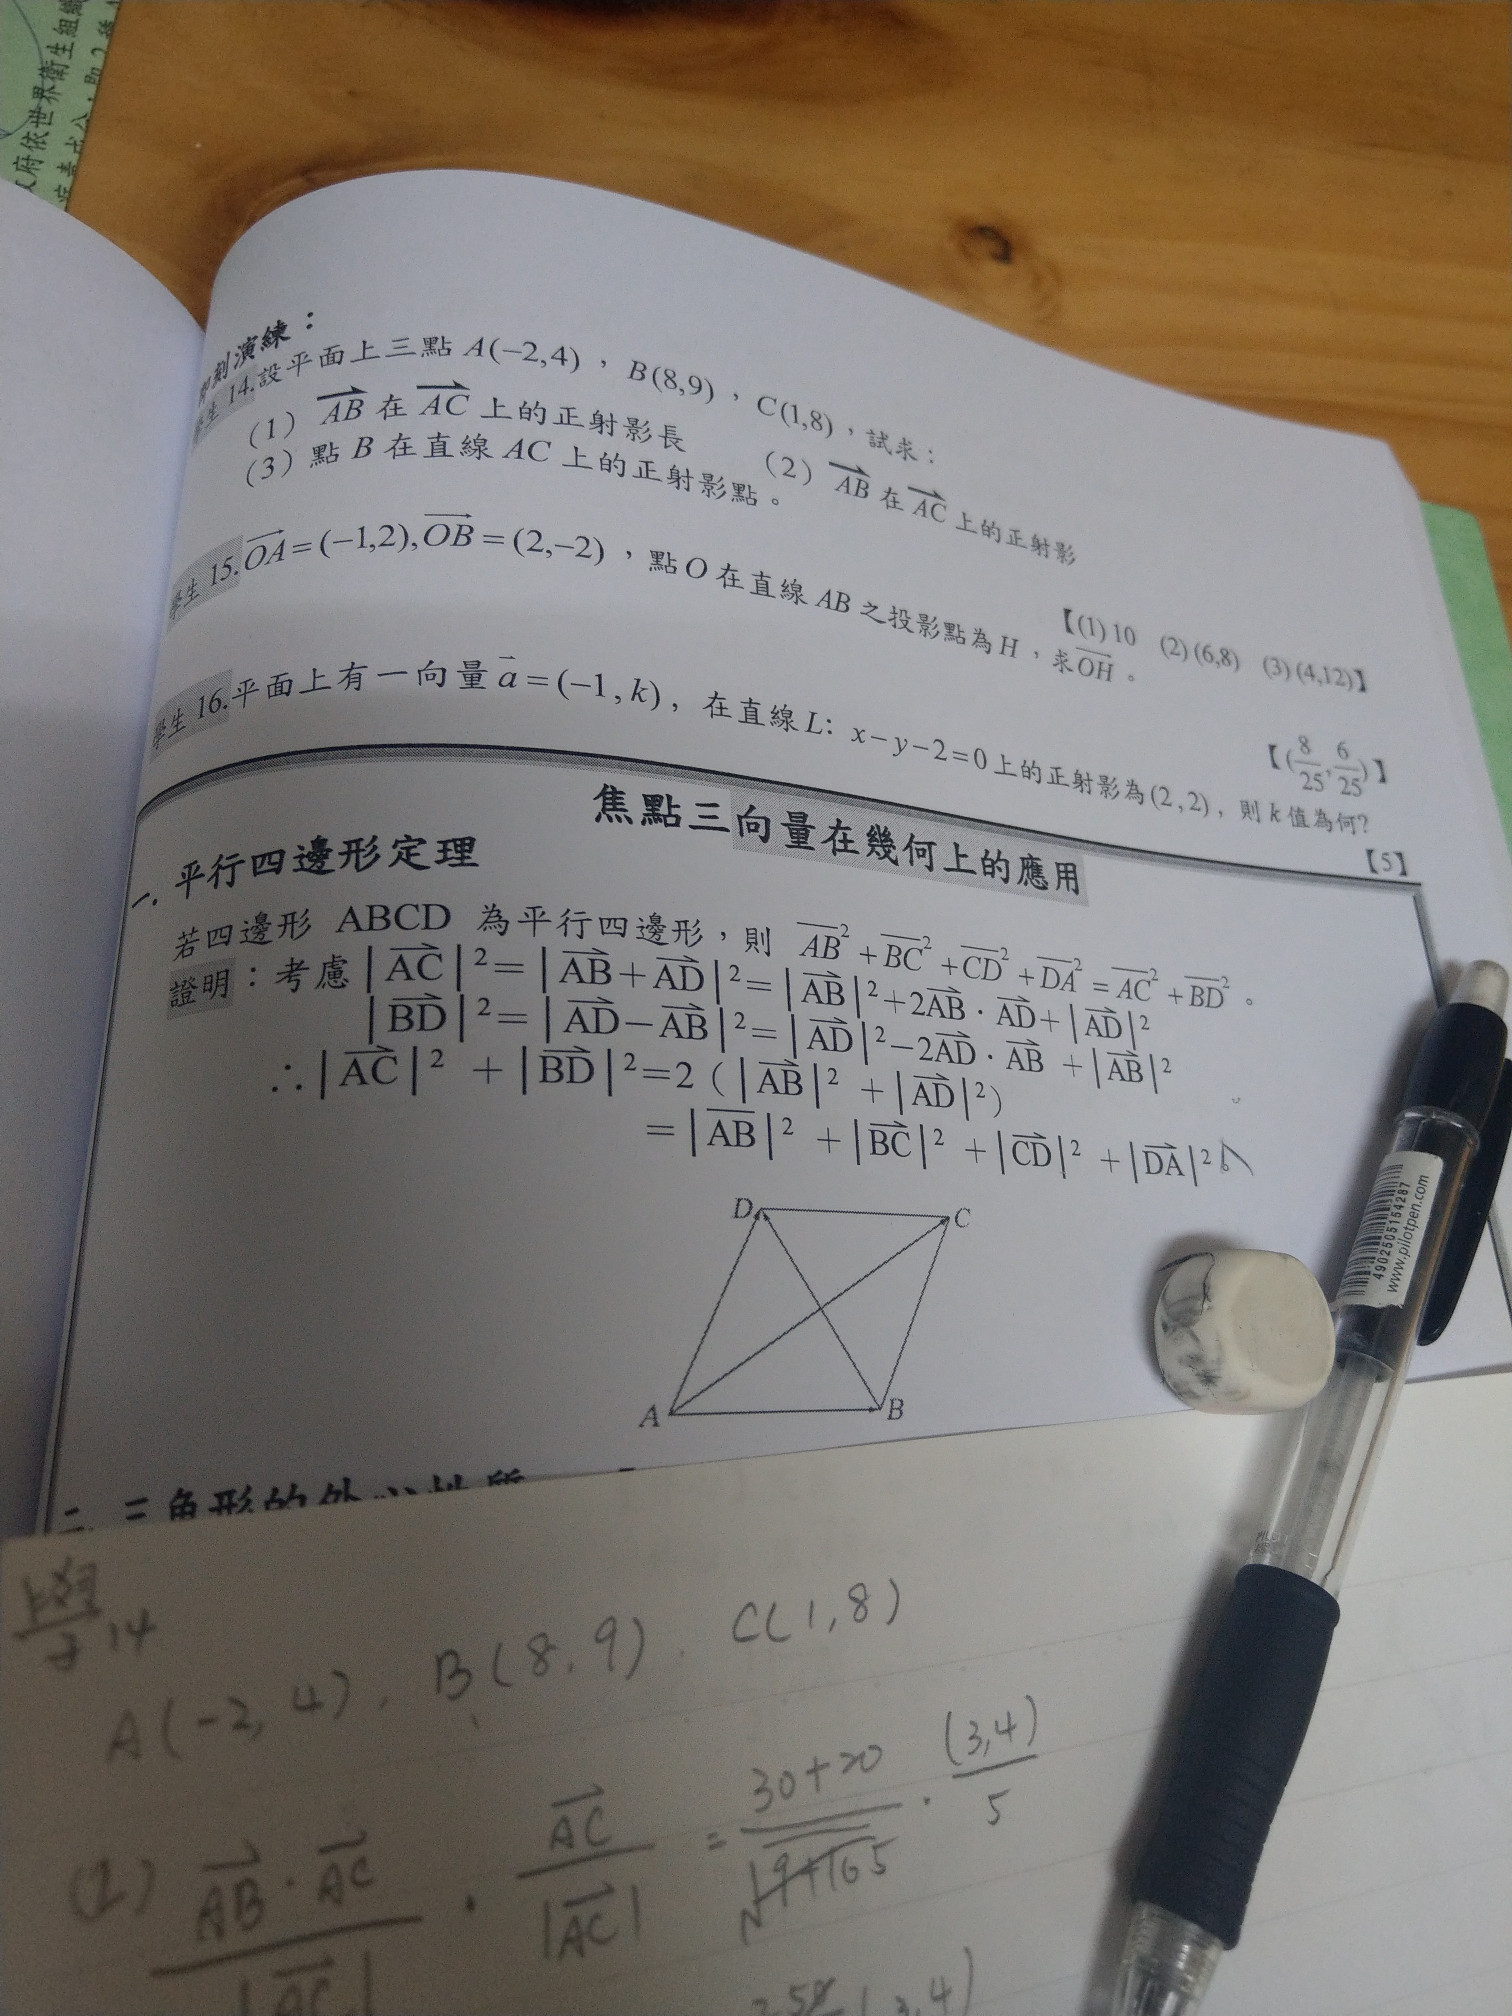 府依世界衛生組織
即刻演練：
學生 14.設平面上三點 A(−2,4)，B(8,9)，C(1,8)，試求：
(1) AB 在 AC 上的正射影長 (2) AB 在 AC 上的正射影
(3) 點 B 在直線 AC 上的正射影點。
【(1)10 (2)(6,8) (3)(4,12)】
學生 15.OA=(−1,2),OB=(2,−2)，點O在直線AB之投影點為H，求OH。
【(8/25,6/25)】
學生 16.平面上有一向量a=(−1,k)，在直線L: x−y−2=0上的正射影為(2,2)，則k值為何?
【5】
焦點三向量在幾何上的應用
一. 平行四邊形定理
若四邊形 ABCD 為平行四邊形，則 AB²+BC²+CD²+DA²=AC²+BD²。
證明：考慮|AC|²=|AB+AD|²=|AB|²+2AB·AD+|AD|²
|BD|²=|AD−AB|²=|AD|²−2AD·AB+|AB|²
∴|AC|²+|BD|²=2（|AB|²+|AD|²）
=|AB|²+|BC|²+|CD|²+|DA|²。
D C
A B
二. 三角形的外心性質
14
A(-2,4), B(8,9). C(1,8)
(1) AB·AC/|AC| · AC/|AC| = 30+20/√9+16 5 · (3,4)/5
(3,4)
4902505154287
www.pilotpen.com